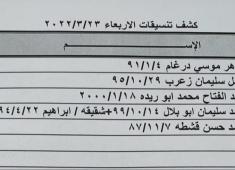 كشف تنسيقات الاربعاء ٢٠٢٢/٣/٢٣
الإســـم
موسي درغام ٩١/١/٤
سليمان زعرب ٩٥/١٠/٢٩
الفتاح محمد ابو ريده ٢٠٠٠/١/١٨
سليمان ابو بلال ٩٩/١٠/١٤+شقيقه / ابراهيم ٩٤/٤/٢٢
حسن قشطه ٨٧/١١/٧